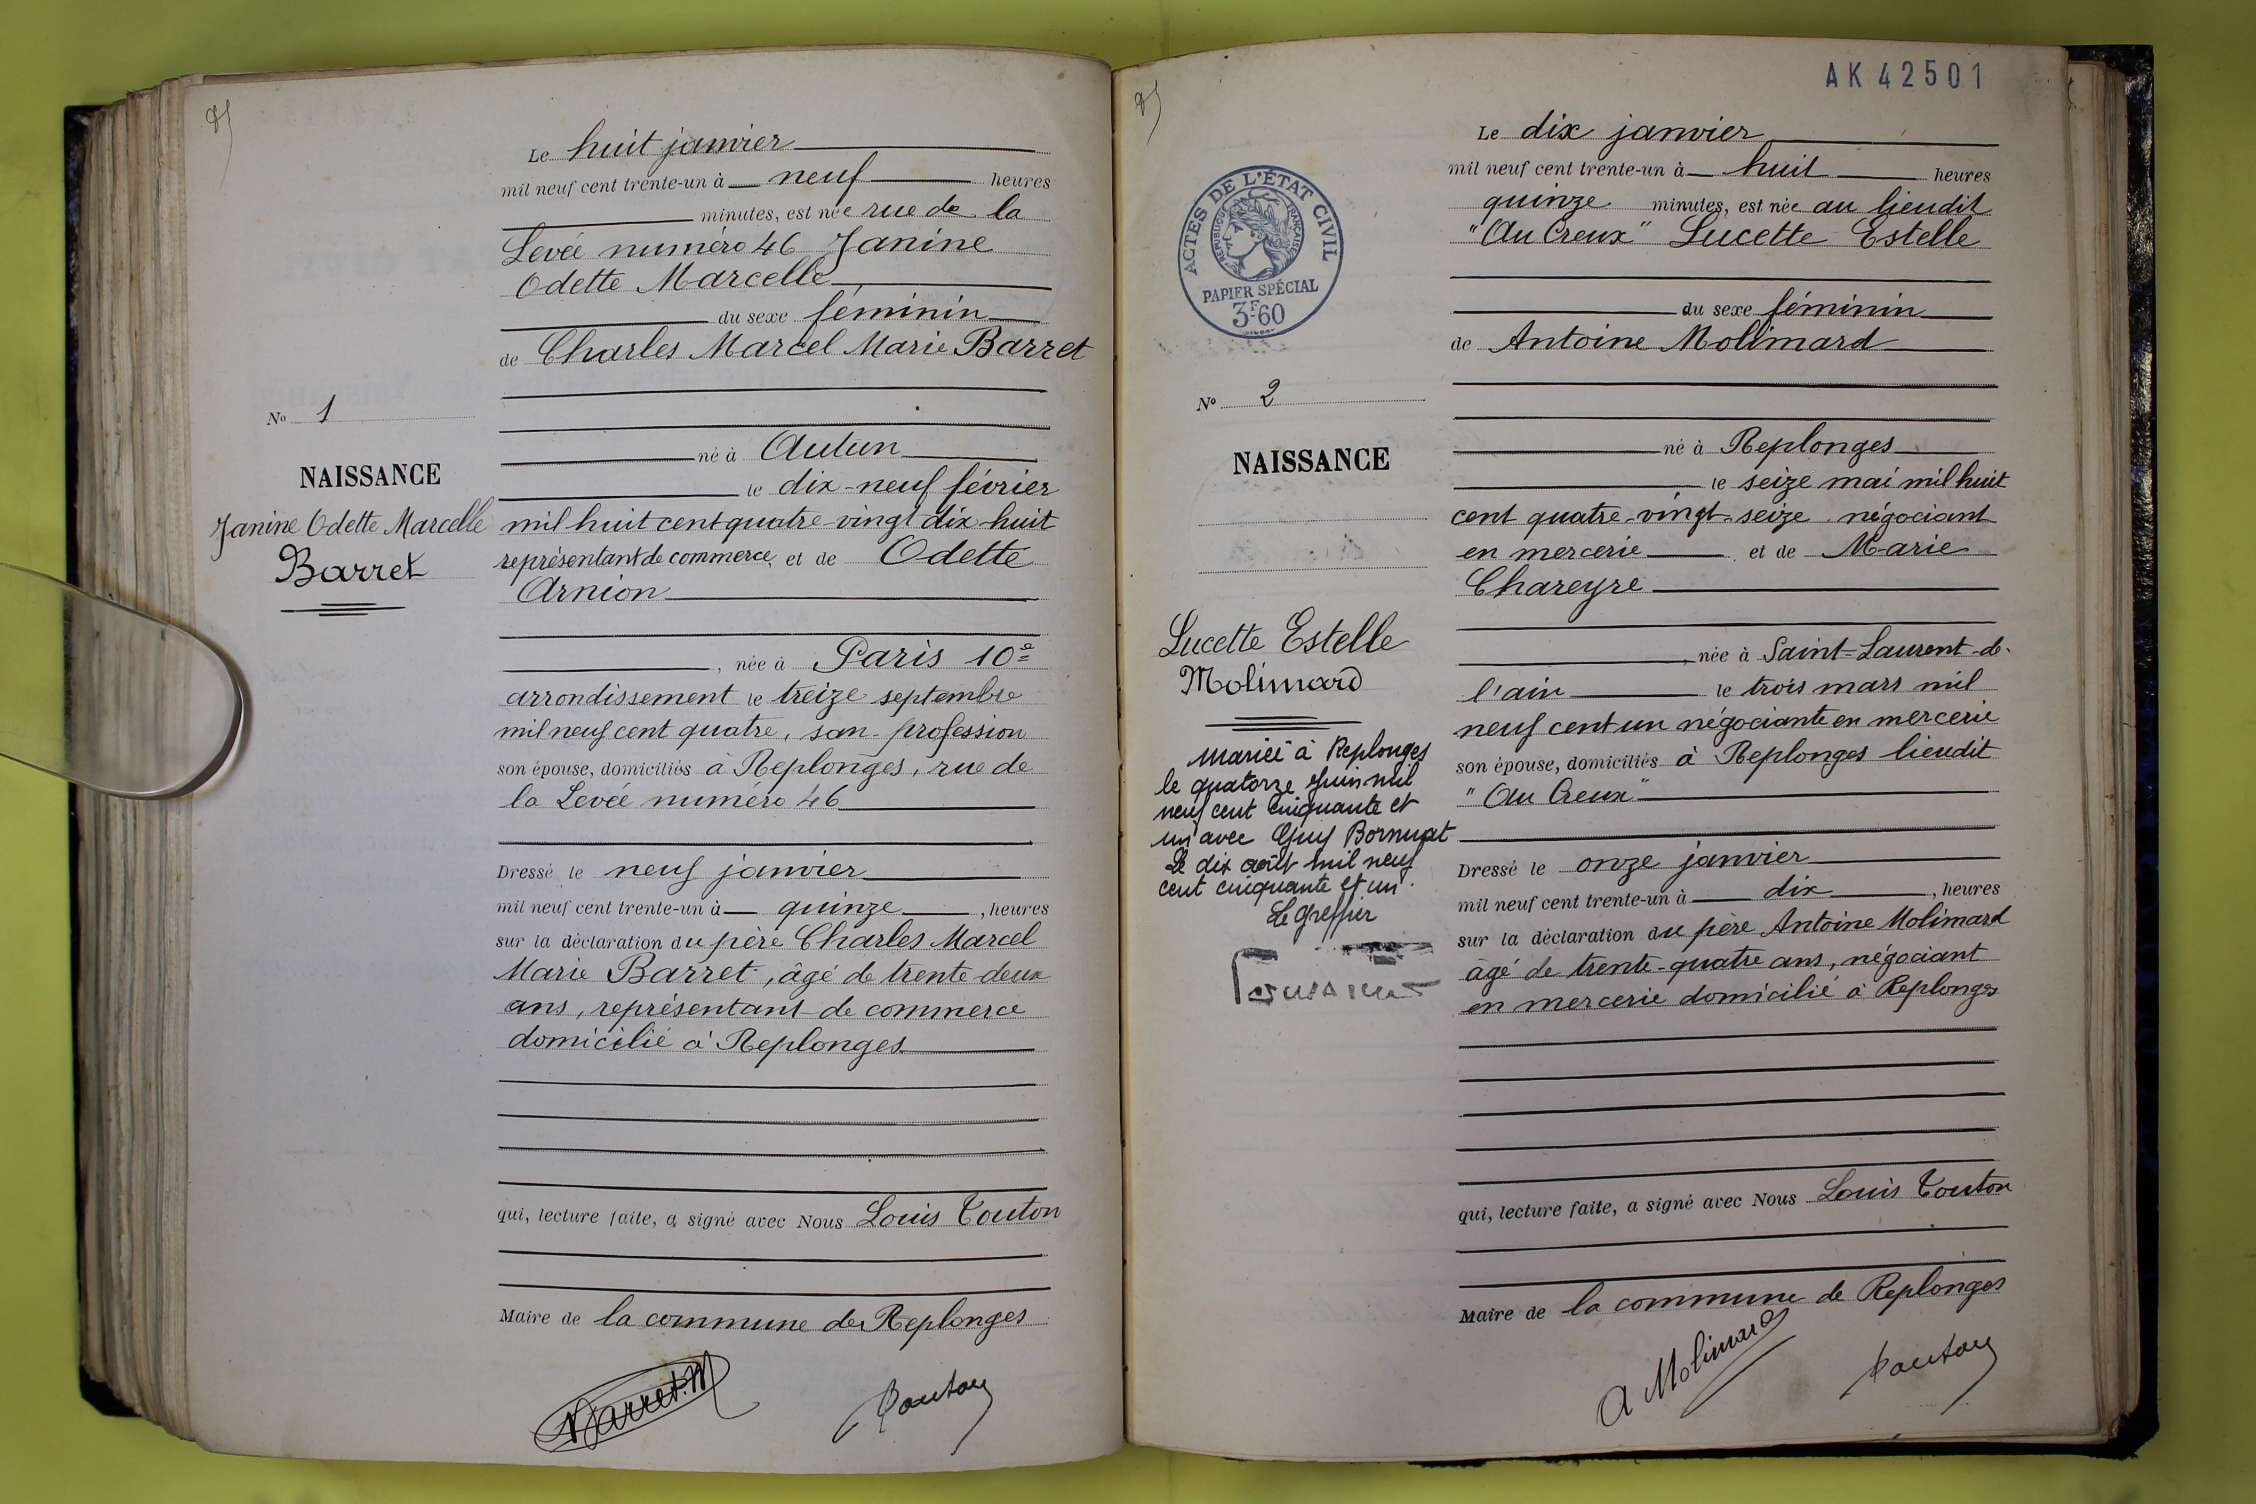 Le huit janvier
mil neuf cent trente-un à neuf heures
minutes, est née rue de la
Levée numéro 46 Janine
Odette Marcelle
du sexe féminin
de Charles Marcel Marie Barret
né à Autun
le dix-neuf février
mil huit cent quatre-vingt dix huit
représentant de commerce, et de Odette
Arnion
, née à Paris 10e
arrondissement le treize septembre
mil neuf cent quatre, san profession
son épouse, domiciliés à Replonges, rue de
la Levée numéro 46
Dressé le neuf janvier
mil neuf cent trente-un à quinze, heures
sur la déclaration du père Charles Marcel
Marie Barret, âgé de trente deux
ans, représentant de commerce
domicilié à Replonges
qui, lecture faite, a signé avec Nous Louis Touton
Maire de la commune de Replonges
Barret.M
Touton
No 1
NAISSANCE
Janine Odette Marcelle
Barret
AK 42501
Le dix janvier
mil neuf cent trente-un à huit heures
quinze minutes, est née au lieudit
"Au Creux" Lucette Estelle
du sexe féminin
de Antoine Molimard
né à Replonges
le seize mai mil huit
cent quatre-vingt-seize négociant
en mercerie et de Marie
Chareyre
, née à Saint-Laurent-de-
l'ain le trois mars mil
neuf cent un négociante en mercerie
son épouse, domiciliés à Replonges lieudit
"Au Creux"
Dressé le onze janvier
mil neuf cent trente-un à dix, heures
sur la déclaration du père Antoine Molimard
âgé de trente-quatre ans, négociant
en mercerie domicilié à Replonges
qui, lecture faite, a signé avec Nous Louis Touton
Maire de la commune de Replonges
A Molimard
Touton
ACTES DE L'ÉTAT CIVIL
RÉPUBLIQUE FRANÇAISE
PAPIER SPÉCIAL
3F60
No 2
NAISSANCE
Lucette Estelle
Molimard
Mariée à Replonges
le quatorze Juin mil
neuf cent cinquante et
un avec Guy Bornuat
Le dix août mil neuf
cent cinquante et un.
Le Greffier